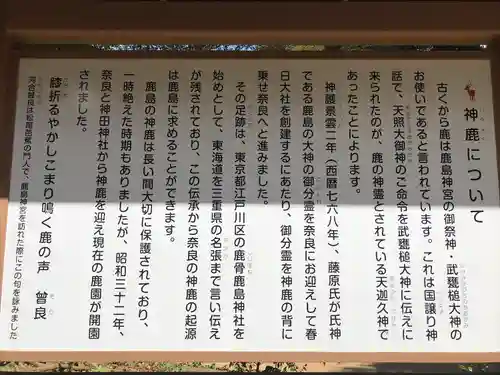 神鹿について
古くから鹿は鹿島神宮の御祭神・武甕槌大神の
お使いであると言われています。これは国譲り神
話で、天照大御神のご命令を武甕槌大神に伝えに
来られたのが、鹿の神霊とされている天迦久神で
あったことによります。
神護景雲二年（西暦七六八年）、藤原氏が氏神
である鹿島の大神の御分霊を奈良にお迎えして春
日大社を創建するにあたり、御分霊を神鹿の背に
乗せ奈良へと進みました。
その足跡は、東京都江戸川区の鹿骨鹿島神社を
始めとして、東海道を三重県の名張まで言い伝え
が残されており、この伝承から奈良の神鹿の起源
は鹿島に求めることができます。
鹿島の神鹿は長い間大切に保護されており、
一時絶えた時期もありましたが、昭和三十二年、
奈良と神田神社から神鹿を迎え現在の鹿園が開園
されました。
膝折るやかしこまり鳴く鹿の声 曽良
河合曽良は松尾芭蕉の門人で、鹿島神宮を訪れた際にこの句を詠みました